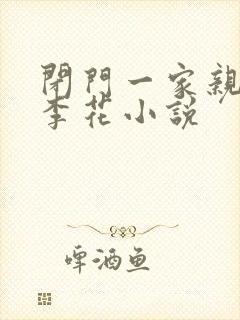 閉門一家親
李花小說
啤酒鱼